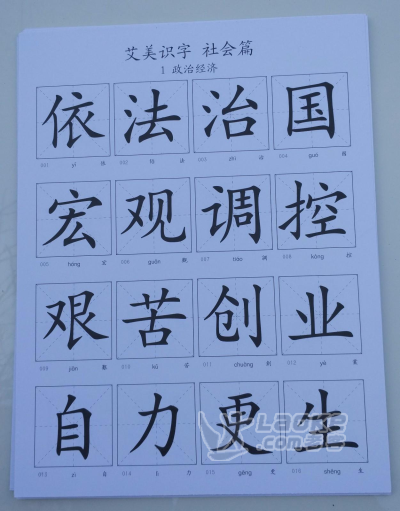 艾美识字 社会篇
1 政治经济
依法治国
001 yī 依 002 fǎ 法 003 zhì 治 004 guó 国
宏观调控
005 hóng 宏 006 guān 007 tiáo 008 kòng 控
艰苦创业
009 jiān 010 kǔ 苦 011 chuàng 012 yè
自力更生
013 zì 自 014 lì 力 015 gēng 更 016 shēng 生